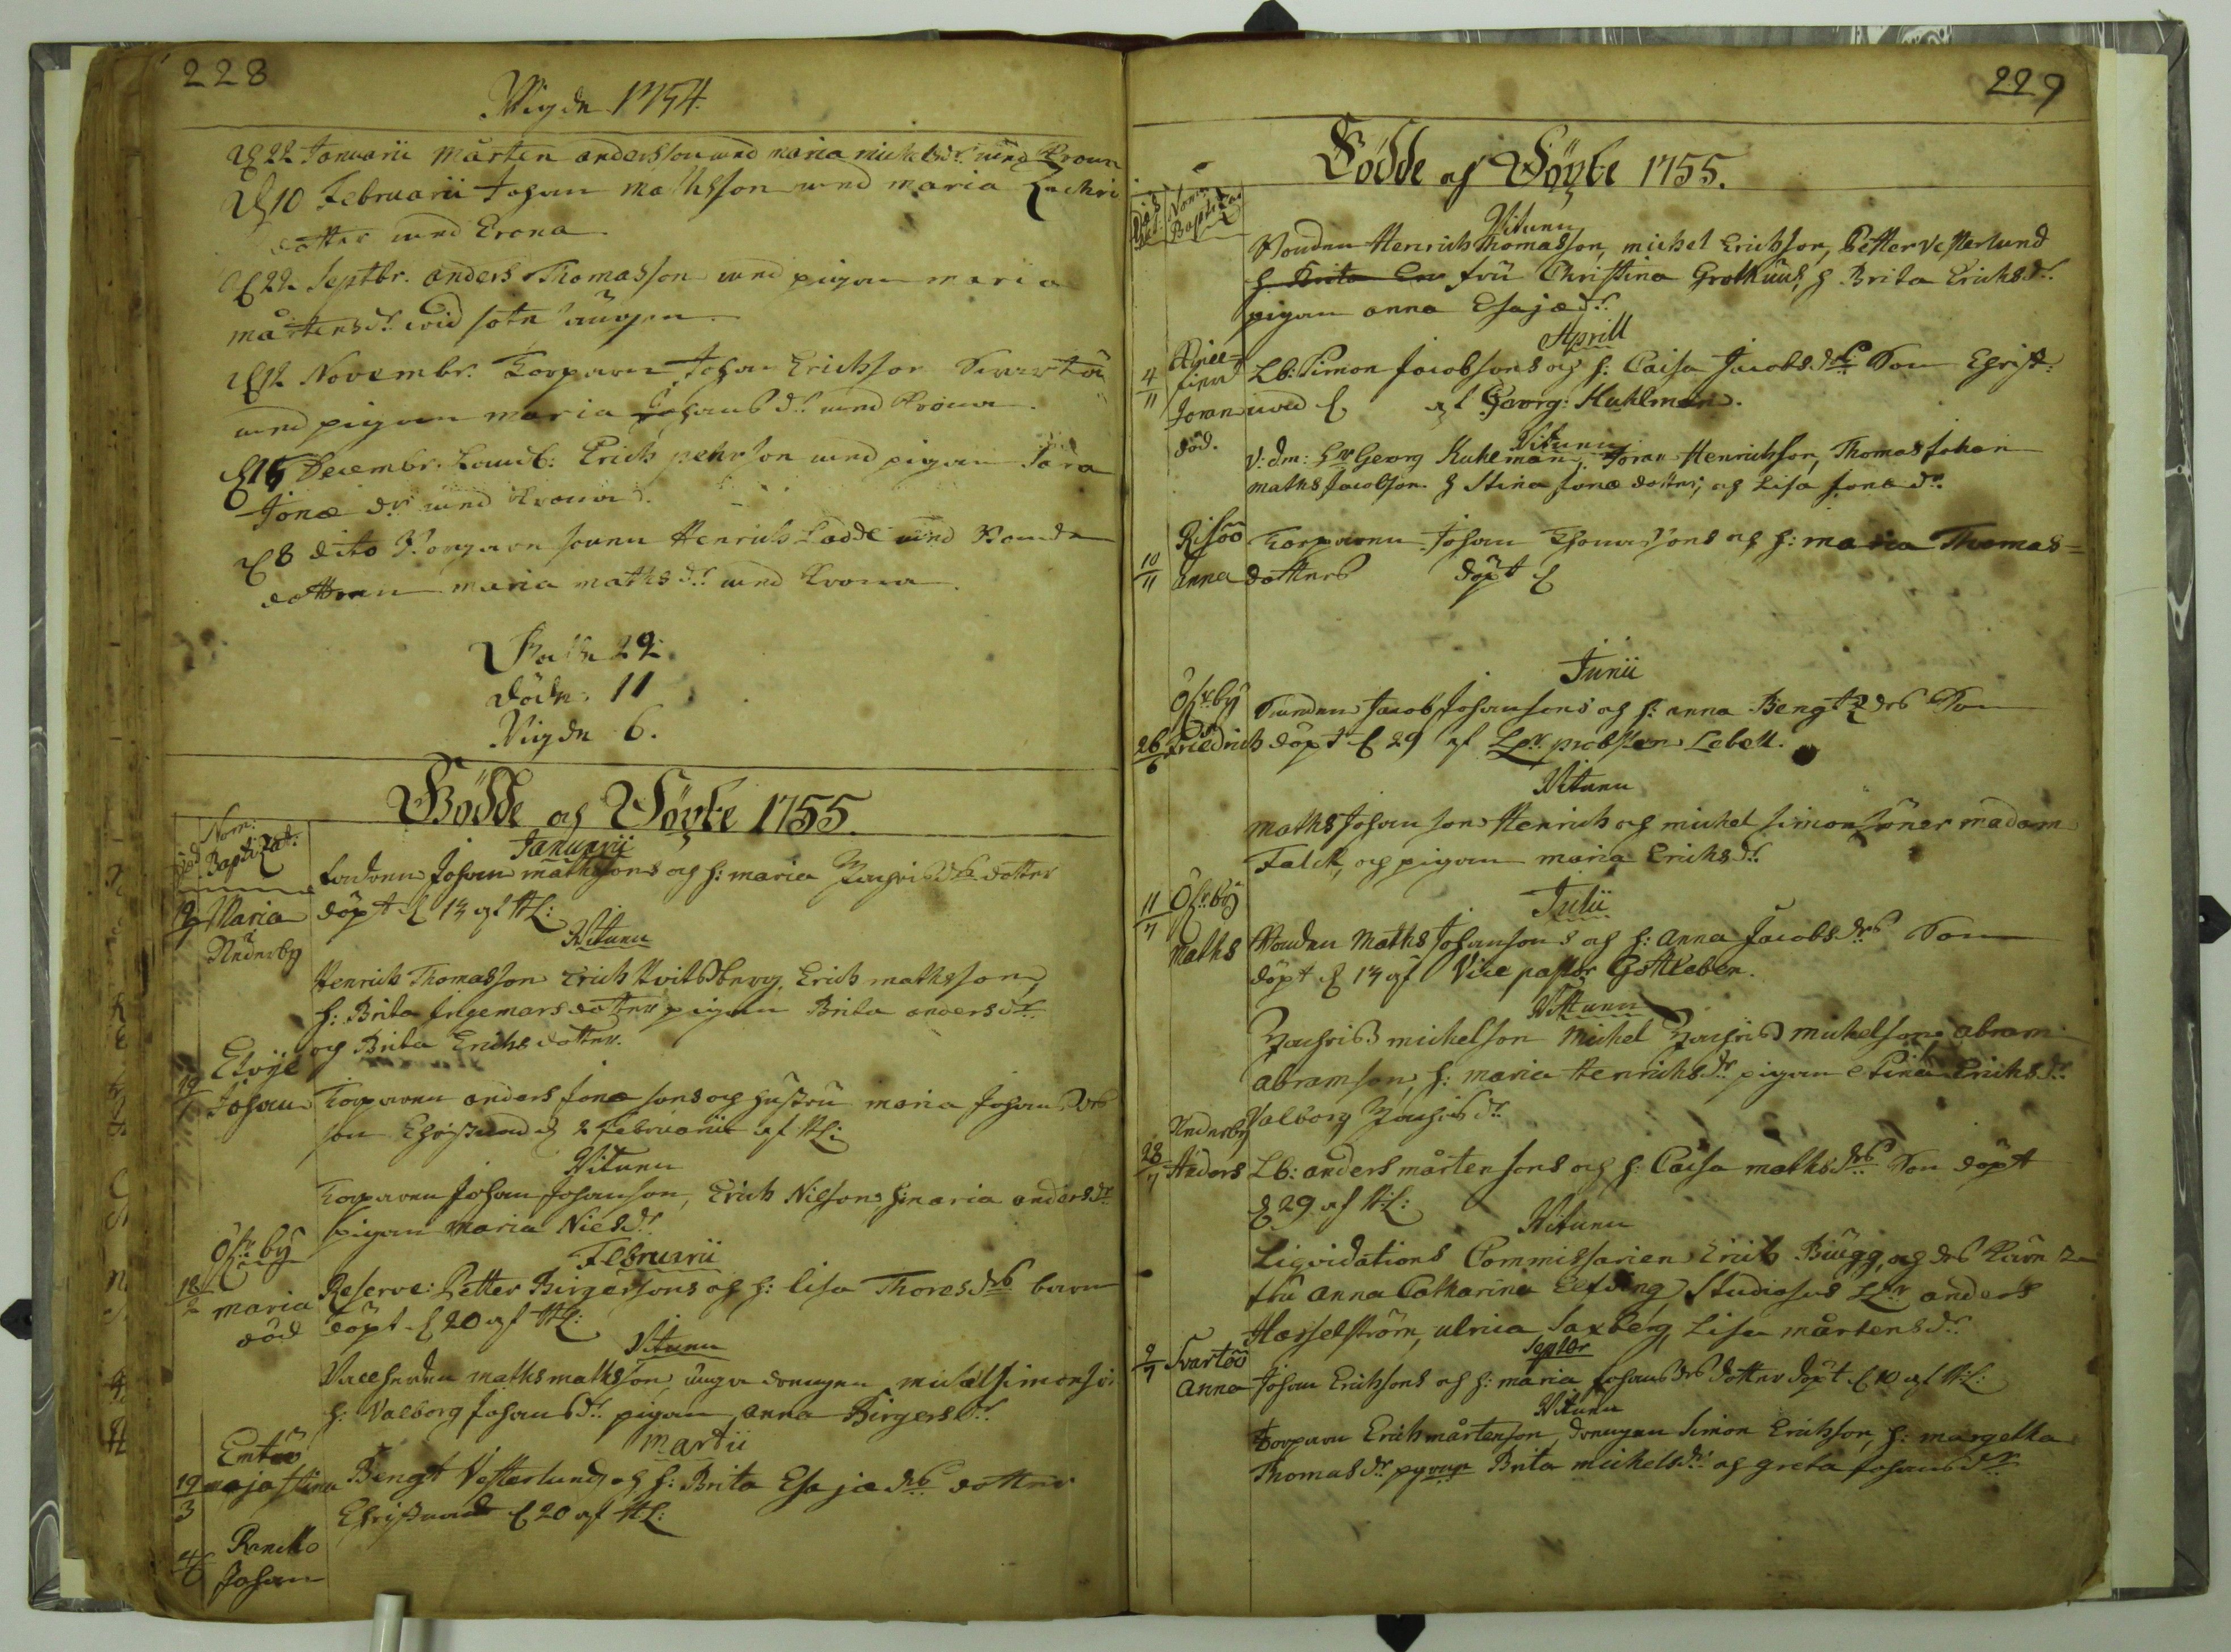 228
Wigde 1754.
d 22 Januarii Mårten andersson med maria michelsdr: med Krona
d 10 Februarii Johan Mathsson med maria Zachri
dotter med Crona
d 22 Septbr. anders Thomasson med pigan maria
mårtensdr. wid sotn sängen.
d 12 Novembr. Torparen Johan Erichson Svartöö
med pigan maria Johansdr. med Krona.
d 15 Decembr. Landb: Erich pehrson med pigan Sara
Jonædr. med Krona.
d 8 dito Torparesonen Henrich Ladde med Bonde
dottren maria mathsdr. med Krona.
Födde 22.
Döde. 11
Vigde 6.
Födde och Döpte 1755.
Nom: Baptizat:
Januarii
Johan mathsons och h: maria Zachrisdrs dotter
Maria döpt d 13 af
Nederby
Vitnen
Henrich Thomasson Erich Kvitsberg, Erich mathsson,
h: Brita Ingemarsdotter pigan Brita andersdr.
och Brita Erichsdotter.
19/1 Johan Torparen anders Jonæsons och hustru maria Johansdrs
son Christnad d 2 februarii af
Vitnen
Torparen Johan Johanson, Erich Nilson, h: maria andersdr.
pigan maria Nielsdr.
Februarii
Öst:by
18/2 maria Reserve: Petter Birgersons och h: lisa Thoresdrs barn
död döpt d 20 af
Vitnen
maths mathsson, unga drengen michel simonson
h: Valborg Johansdr. pigan anna Birgersdr.
Martii
Emtöö
19/3 maja stina Bengt Vesterlunds och h: Brita Esajædrs dotter
Christnad d 20 af
Johan
229
Födde och Döpte 1755.
Nomina Baptizator
Vitnen
Bonden Henrich Thomasson, michel Erichson, Petter Vesterlund
h. fru Christina Grothuus, h Brita Erichsdr.
pigan anna Esajædr.
Aprill
4/11 Lb: Simon Jacobsons och h: Caisa Jacobsdrs Son Christ:
Joran nad d af Georg: Kuhlman.
död.
Vitnen
V: dm: Hr Georg Kuhlman, Joran Henrichson, Thomas Johan
maths Jacobson. h Stina Jonæ dotter, och Lisa Jonædr.
Risöö
10/11 anna Torparen Johan Thomassons och h: maria Thomas=
dotters döpt d
Junii
Öst:by
26/6 Friedrich Jacob Johansons och h: anna Bengtzdrs Son
döpt d 29 af Hr. probsten Lebell.
Vitnen
maths Johanson Henrich och michel simonsöner madam
Falck, och pigan maria Erichsdr.
Julii
11/7 Öst:by
Maths Bonden Maths Johansons och h: Anna Jacobsdrs Son
döpt d 13 af Vice pastor Gottleben.
Vittnen
Zachris michelson Michel Zachris michelson, abram
abramson, h: maria Henrichsdr. pigan Stina Erichsdr.
Valborg Zachrisdr.
Nederby
28/7 Anders Lb: anders mårtensons och h: Caisa mathsdrs Son döpt
d 29 af
Vitnen
Liqvidations Commissarien Erich Bûgg, och drs
fru Anna Catharina Elfving Studiosus Hr anders
Hasselström, ulrica Saxberg, Lisa mårtensdr.
Septbr
9/7 Svartöö
Anna Johan Erichsons och h: maria Johansdrs dotter döpt d 10 af
Vitnen
Torparen Erich mårtenson, drengen Simon Erichson, h: margetta
Thomasdr. pigan Brita michelsdr. och greta Johansdr.